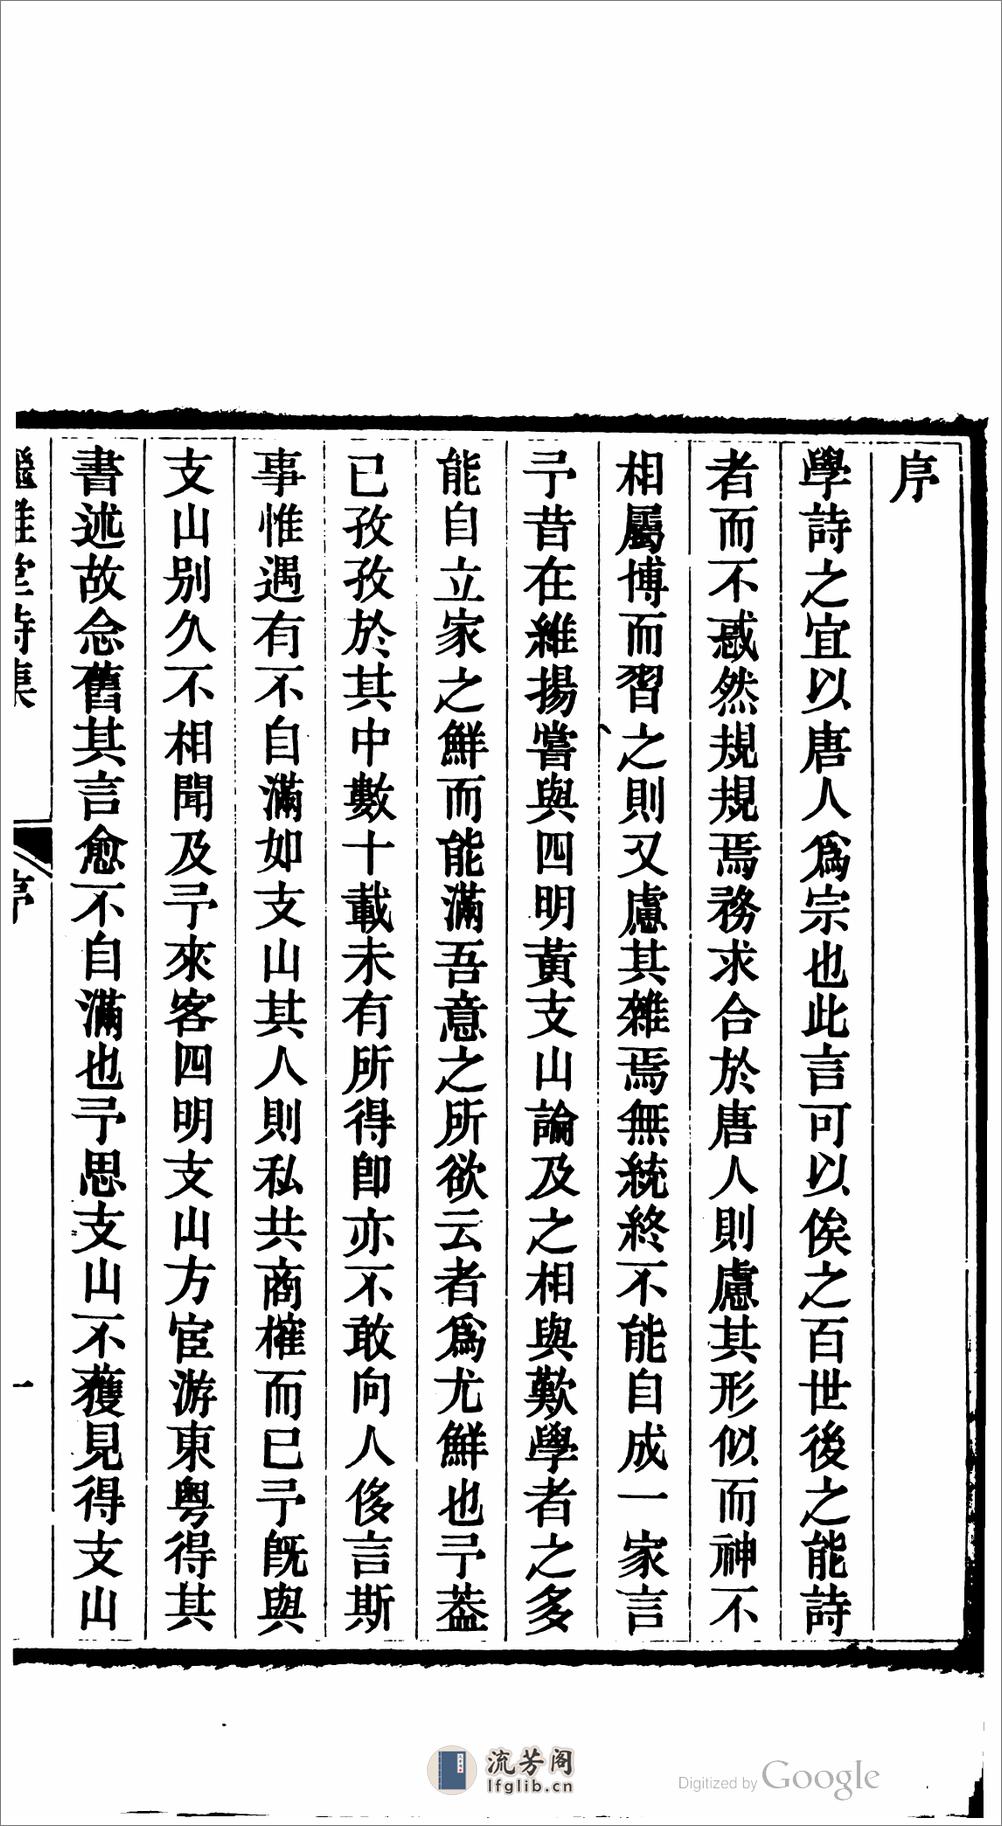 序
學詩之宜以唐人爲宗也此言可以俟之百世後之能詩
者而不惑然規規焉務求合於唐人則慮其形似而神不
相屬博而習之則又慮其雜焉無統終不能自成一家言
予昔在維揚嘗與四明黃支山論及之相與歎學者之多
能自立家之鮮而能滿吾意之所欲云者爲尤鮮也予葢
已孜孜於其中數十載未有所得卽亦不敢向人侈言斯
事惟遇有不自滿如支山其人則私共商榷而已予旣與
支山別久不相聞及予來客四明支山方宦游東粤得其
書述故念舊其言愈不自滿也予思支山不獲見得支山
雅堂詩集
序
一
流芳阁
lfglib.cn
Digitized by Google